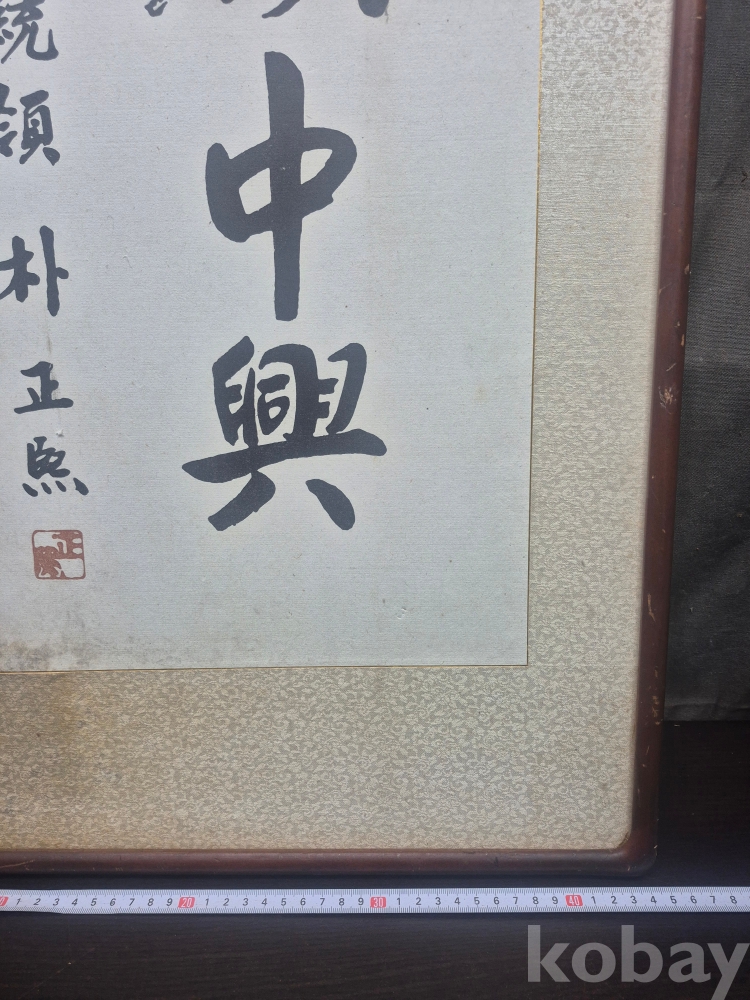 中興
統領 朴正熙
正
1 2 3 4 5 6 7 8 9 20 1 2 3 4 5 6 7 8 9 30 1 2 3 4 5 6 7 8 9 40 1 2 3 4 5 6 7 8
kobay